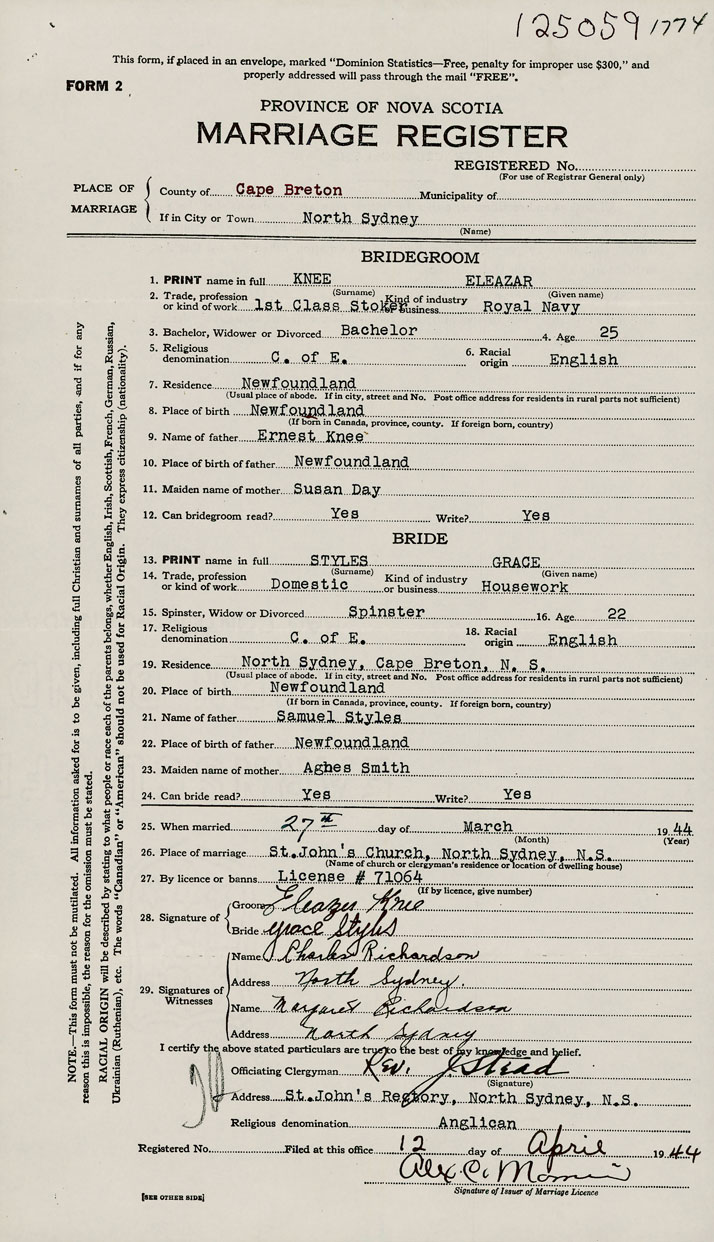 125059 1774
This form, if placed in an envelope, marked "Dominion Statistics—Free, penalty for improper use $300," and
properly addressed will pass through the mail "FREE".
FORM 2
PROVINCE OF NOVA SCOTIA
MARRIAGE REGISTER
REGISTERED No.
(For use of Registrar General only)
PLACE OF MARRIAGE
County of Cape Breton Municipality of
If in City or Town North Sydney
(Name)
BRIDEGROOM
1. PRINT name in full KNEE ELEAZAR
(Surname) (Given name)
2. Trade, profession or kind of work 1st Class Stoker Kind of industry or business Royal Navy
3. Bachelor, Widower or Divorced Bachelor 4. Age 25
5. Religious denomination C. of E. 6. Racial origin English
7. Residence Newfoundland
(Usual place of abode. If in city, street and No. Post office address for residents in rural parts not sufficient)
8. Place of birth Newfoundland
(If born in Canada, province, county. If foreign born, country)
9. Name of father Ernest Knee
10. Place of birth of father Newfoundland
11. Maiden name of mother Susan Day
12. Can bridegroom read? Yes Write? Yes
BRIDE
13. PRINT name in full STYLES GRACE
(Surname) (Given name)
14. Trade, profession or kind of work Domestic Kind of industry or business Housework
15. Spinster, Widow or Divorced Spinster 16. Age 22
17. Religious denomination C. of E. 18. Racial origin English
19. Residence North Sydney, Cape Breton, N. S.
(Usual place of abode. If in city, street and No. Post office address for residents in rural parts not sufficient)
20. Place of birth Newfoundland
(If born in Canada, province, county. If foreign born, country)
21. Name of father Samuel Styles
22. Place of birth of father Newfoundland
23. Maiden name of mother Aghes Smith
24. Can bride read? Yes Write? Yes
25. When married 27th day of March 1944
(Month) (Year)
26. Place of marriage St.John's Church, North Sydney, N.S.
(Name of church or clergyman's residence or location of dwelling house)
27. By licence or banns License # 71064
(If by licence, give number)
28. Signature of
Groom Eleazer Knee
Bride Grace Styles
29. Signatures of Witnesses
Name Charles Richardson
Address North Sydney.
Name Margaret Richardson
Address North Sydney
I certify the above stated particulars are true to the best of my knowledge and belief.
Officiating Clergyman Rev. J Stead
(Signature)
Address St.John's Rectory, North Sydney, N.S.
Religious denomination Anglican
Registered No. Filed at this office 12 day of April 1944
Alex. C.
Signature of Issuer of Marriage Licence
[SEE OTHER SIDE]
NOTE.—This form must not be mutilated. All information asked for is to be given, including full Christian and surnames of all parties, and if for any
reason this is impossible, the reason for the omission must be stated.
RACIAL ORIGIN will be described by stating to what people or race each of the parents belongs, whether English, Irish, Scottish, French, German, Russian,
Ukrainian (Ruthenian), etc. The words "Canadian" or "American" should not be used for Racial Origin. They express citizenship (nationality).